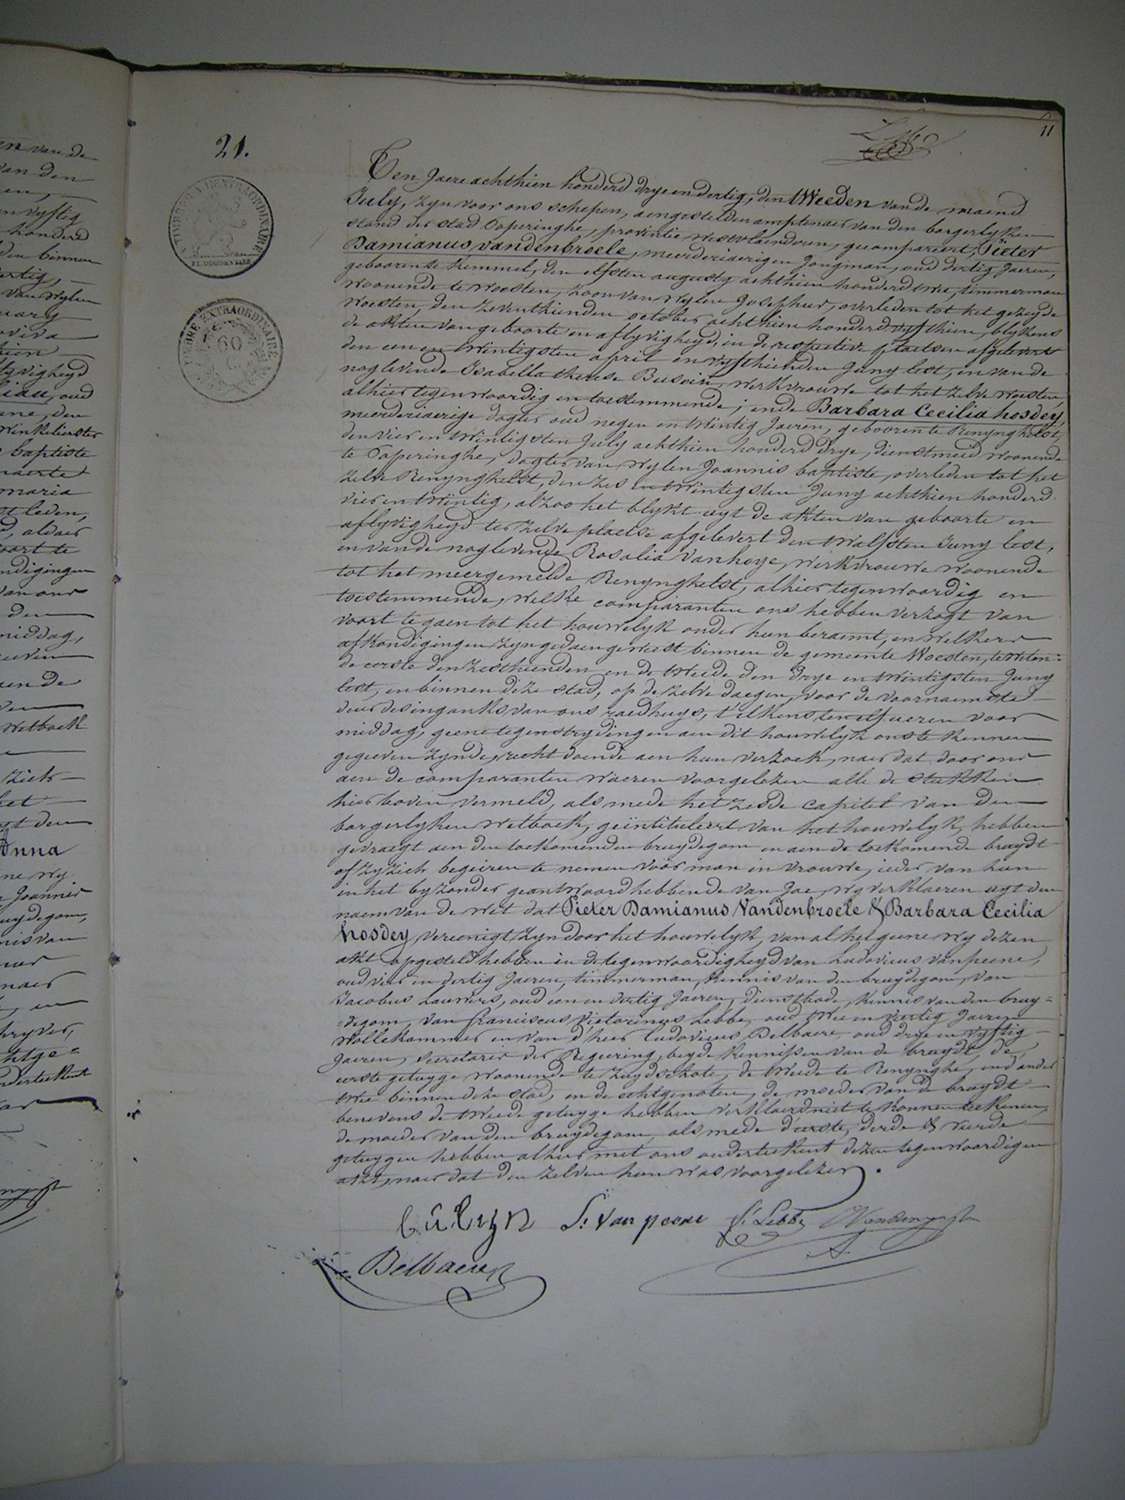 21.
11
Ten Jaere achthien honderd drye en dertig, den tweeden van de maend
July, zyn voor ons schepen, aengestelden amptenaer van den borgerlyken
stand der stad Poperinghe, provintie Westvlaenderen, gecompareert, Pieter
Damianus Vandenbroele, meerderjaerigen Jongman, oud dertig Jaeren,
geboren te Kemmel, den elfsten augusty achthien honderd twee, timmerman
woonende te Woesten, zoon van wylen Josephus, overleden tot het gezeyde
Woesten, den zeventhienden october achthien honderd vyfthien, blykens
de akten van geboorte en aflyvigheyd, in de respective plaetsen afgelevert
den een en twintigsten april en vyfthienden Juny lest, en van de
naglevende Isabella therese Busein, werkvrouwe tot het zelve Woesten
alhier tegenwoordig en toestemmende; ende Barbara Cecilia hosdey,
meerderjaerige dogter oud negen en twintig Jaeren, geboren te Renynghelst,
den vier en twintigsten July achthien honderd drye, dienstmeid woonende
te Poperinghe, dogter van wylen Joannis baptiste, overleden tot het
zelve Renynghelst, den zes en twintigsten Juny achthien honderd
vier en twintig, alzoo het blykt uyt de akten van geboorte en
aflyvigheyd ter zelve plaetse afgelevert den twalfsten Juny lest,
en van de naglevende Rosalia Vanhoye, werkvrouwe woonende
tot het meergemelde Renynghelst, alhier tegenwoordig en
toestemmende, welke comparanten ons hebben verzogt van
voort te gaen tot het houwelyk onder hun beraemt, en welkers
afkondigingen zyn gedaen geweest binnen de gemeente Woesten, te weten:
de eerste den zesthienden en de tweede den drye en twintigsten Juny
lest, en binnen deze stad, op de zelve daegen, voor de voornaemste
deur des inganks van ons raedhuys, t'elkens ten elf ueren voor
middag, geene tegenstrydingen aen dit houwelyk ons te kennen
gegeven zynde, recht doende aen hun verzoek, naer dat door ons
aen de comparanten waeren voorgelezen alle de stukken
hier boven vermeld, als mede het zesde capitel van den
borgerlyken wetboek, geïntituleert van het houwelyk, hebben
gevraegt aen den toekomenden bruydegom en aen de toekomende bruydt
of zy zich begeiren te nemen voor man en vrouwe, ieder van hun
in het byzonder geantwoord hebbende van Jae, wy verklaeren uyt den
naem van de wet dat Pieter Damianus Vandenbroele & Barbara Cecilia
hosdey, vereenigt zyn door het houwelyk, van al het geene wy dezen
akt opgesteld hebben in de tegenwoordigheyd van Ludovicus vanpeene,
oud vier en dertig Jaeren, timmerman, kennis van den bruydegom, van
Jacobus Lauwers, oud een en dertig Jaeren, dienstbode, kennis van den bruy-
degom, van franciscus Victorinus Lebbe, oud twee en veertig Jaeren
wollekammer en van d'heer Ludovicus Delbaere, oud drye en vyftig
Jaeren, secretaris der Regeering, beyde kennissen van de bruydt, de
eerste getuyge woonende te Zuydschote, de tweede te Renynghe, en d'ander
twee binnen deze stad, en de echtgenoten, de moeder van de bruydt
benevens de tweede getuyge hebben verklaerd niet te konnen teekenen,
de moeder van den bruydegom, als mede d'eerste, derde & vierde
getuygen hebben alhier met ons onderteekent dezen tegenwoordigen
akt, naer dat den zelven hun was voorgelezen.
L: Van peene F: Lebbe
Delbaere